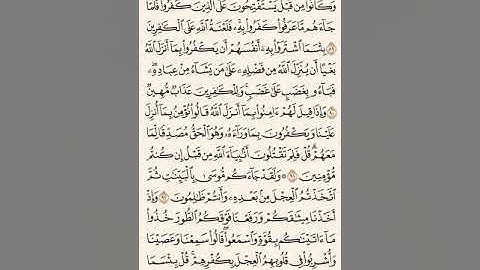 وَكَانُوا۟ مِن قَبْلُ يَسْتَفْتِحُونَ عَلَى ٱلَّذِينَ كَفَرُوا۟ فَلَمَّا
جَآءَهُم مَّا عَرَفُوا۟ كَفَرُوا۟ بِهِۦ فَلَعْنَةُ ٱللَّهِ عَلَى ٱلْكَـٰفِرِينَ
٨٩ بِئْسَمَا ٱشْتَرَوْا۟ بِهِۦٓ أَنفُسَهُمْ أَن يَكْفُرُوا۟ بِمَآ أَنزَلَ ٱللَّهُ
بَغْيًا أَن يُنَزِّلَ ٱللَّهُ مِن فَضْلِهِۦ عَلَىٰ مَن يَشَآءُ مِنْ عِبَادِهِۦ ۖ
فَبَآءُو بِغَضَبٍ عَلَىٰ غَضَبٍ ۚ وَلِلْكَـٰفِرِينَ عَذَابٌ مُّهِينٌ
٩٠ وَإِذَا قِيلَ لَهُمْ ءَامِنُوا۟ بِمَآ أَنزَلَ ٱللَّهُ قَالُوا۟ نُؤْمِنُ بِمَآ أُنزِلَ
عَلَيْنَا وَيَكْفُرُونَ بِمَا وَرَآءَهُۥ وَهُوَ ٱلْحَقُّ مُصَدِّقًا لِّمَا
مَعَهُمْ ۗ قُلْ فَلِمَ تَقْتُلُونَ أَنۢبِيَآءَ ٱللَّهِ مِن قَبْلُ إِن كُنتُم
مُّؤْمِنِينَ ٩١ ۞ وَلَقَدْ جَآءَكُم مُّوسَىٰ بِٱلْبَيِّنَـٰتِ ثُمَّ
ٱتَّخَذْتُمُ ٱلْعِجْلَ مِنۢ بَعْدِهِۦ وَأَنتُمْ ظَـٰلِمُونَ ٩٢ وَإِذْ
أَخَذْنَا مِيثَـٰقَكُمْ وَرَفَعْنَا فَوْقَكُمُ ٱلطُّورَ خُذُوا۟
مَآ ءَاتَيْنَـٰكُم بِقُوَّةٍ وَٱسْمَعُوا۟ ۖ قَالُوا۟ سَمِعْنَا وَعَصَيْنَا
وَأُشْرِبُوا۟ فِى قُلُوبِهِمُ ٱلْعِجْلَ بِكُفْرِهِمْ ۚ قُلْ بِئْسَمَا